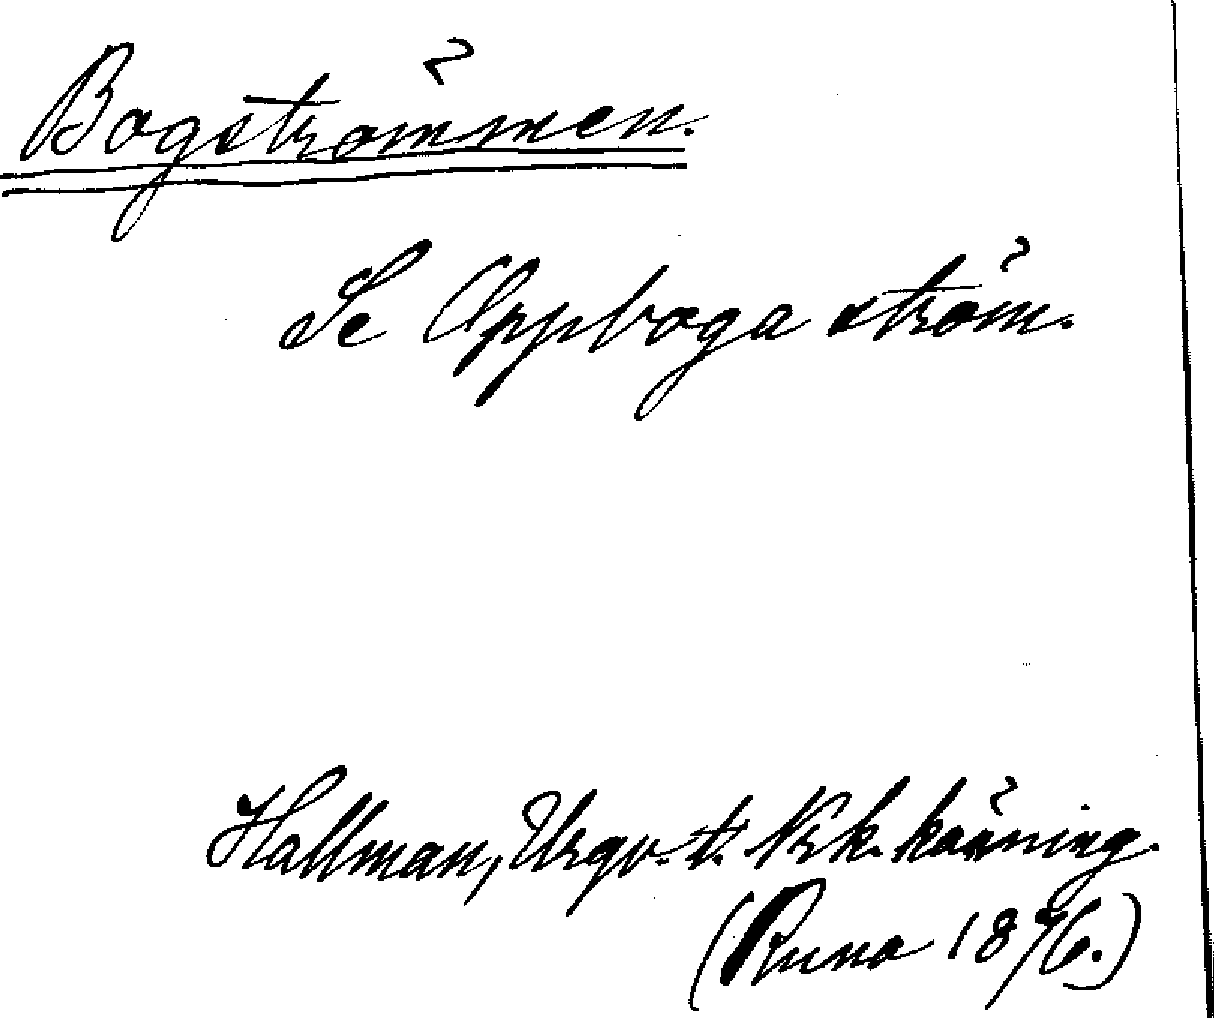 Bogströmmen.
Se Oppboga ström.
Hallman, Urgv. t. Nrk. känning.
(Runa 1876.)